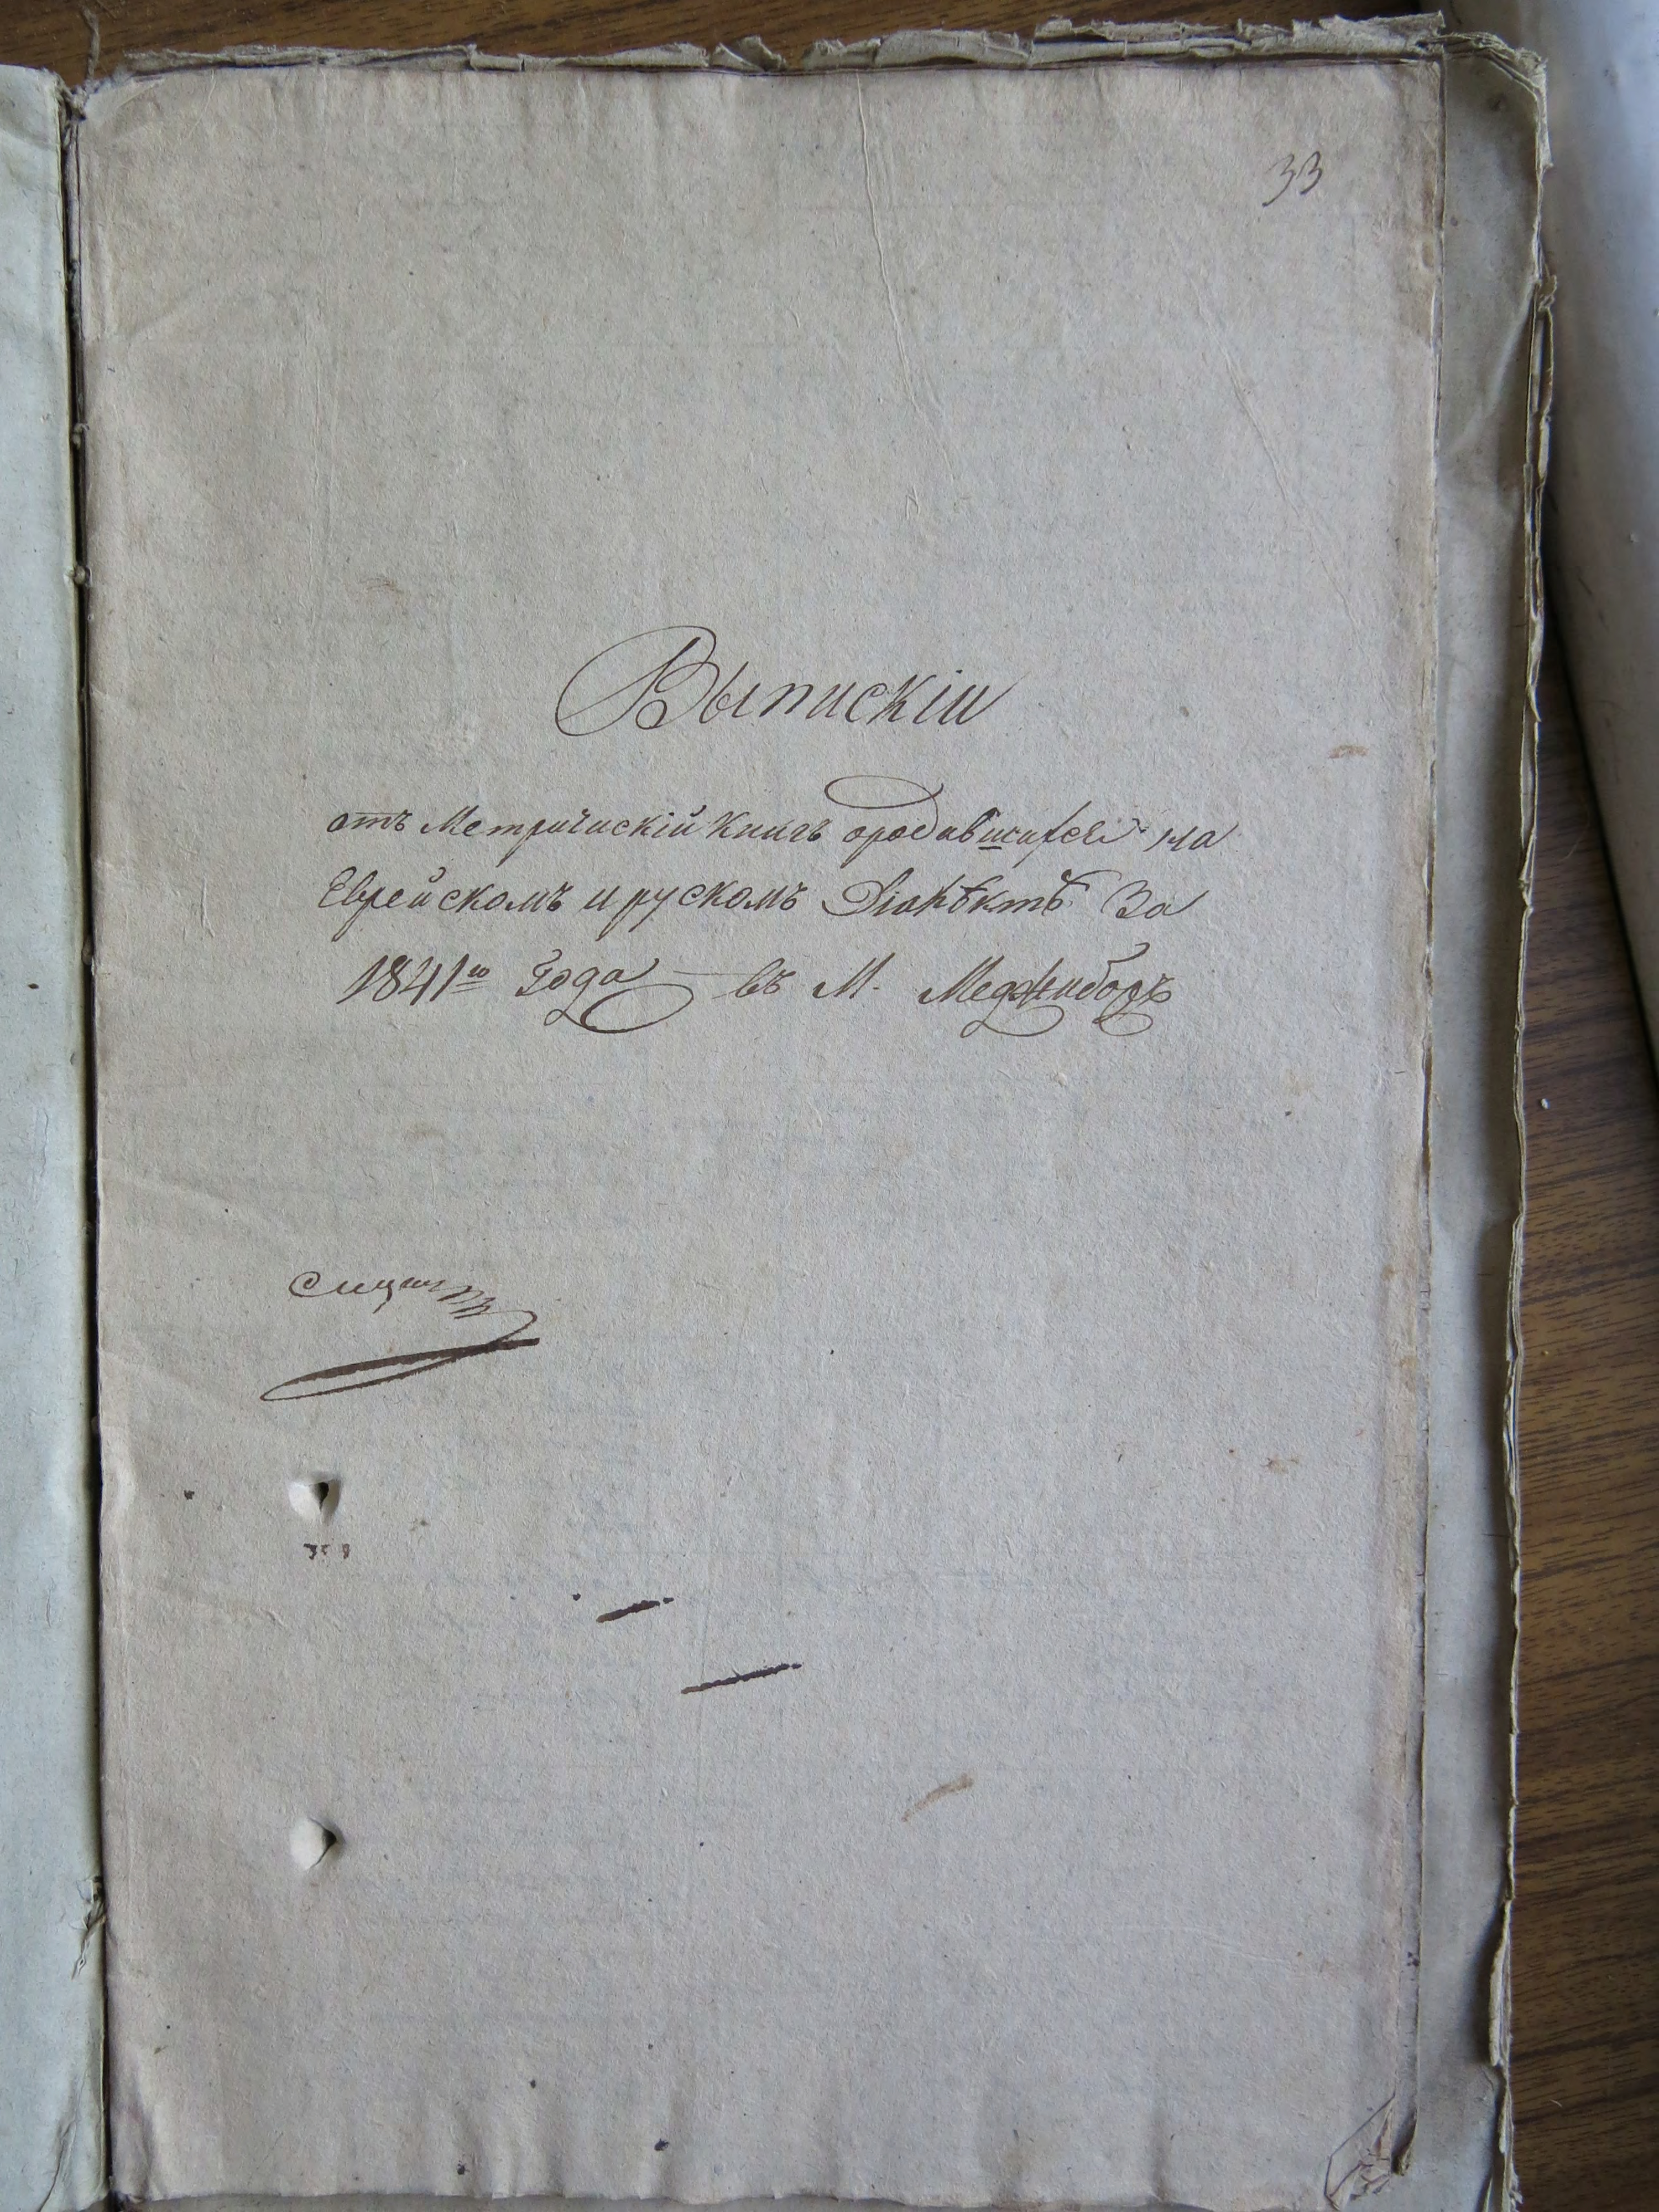 33
Выпискіи
отъ Метричискій Книгъ ородавшихся на
Еврейскомъ и рускомъ Діалѣктѣ За
1841го Года — въ М. Меджибожъ